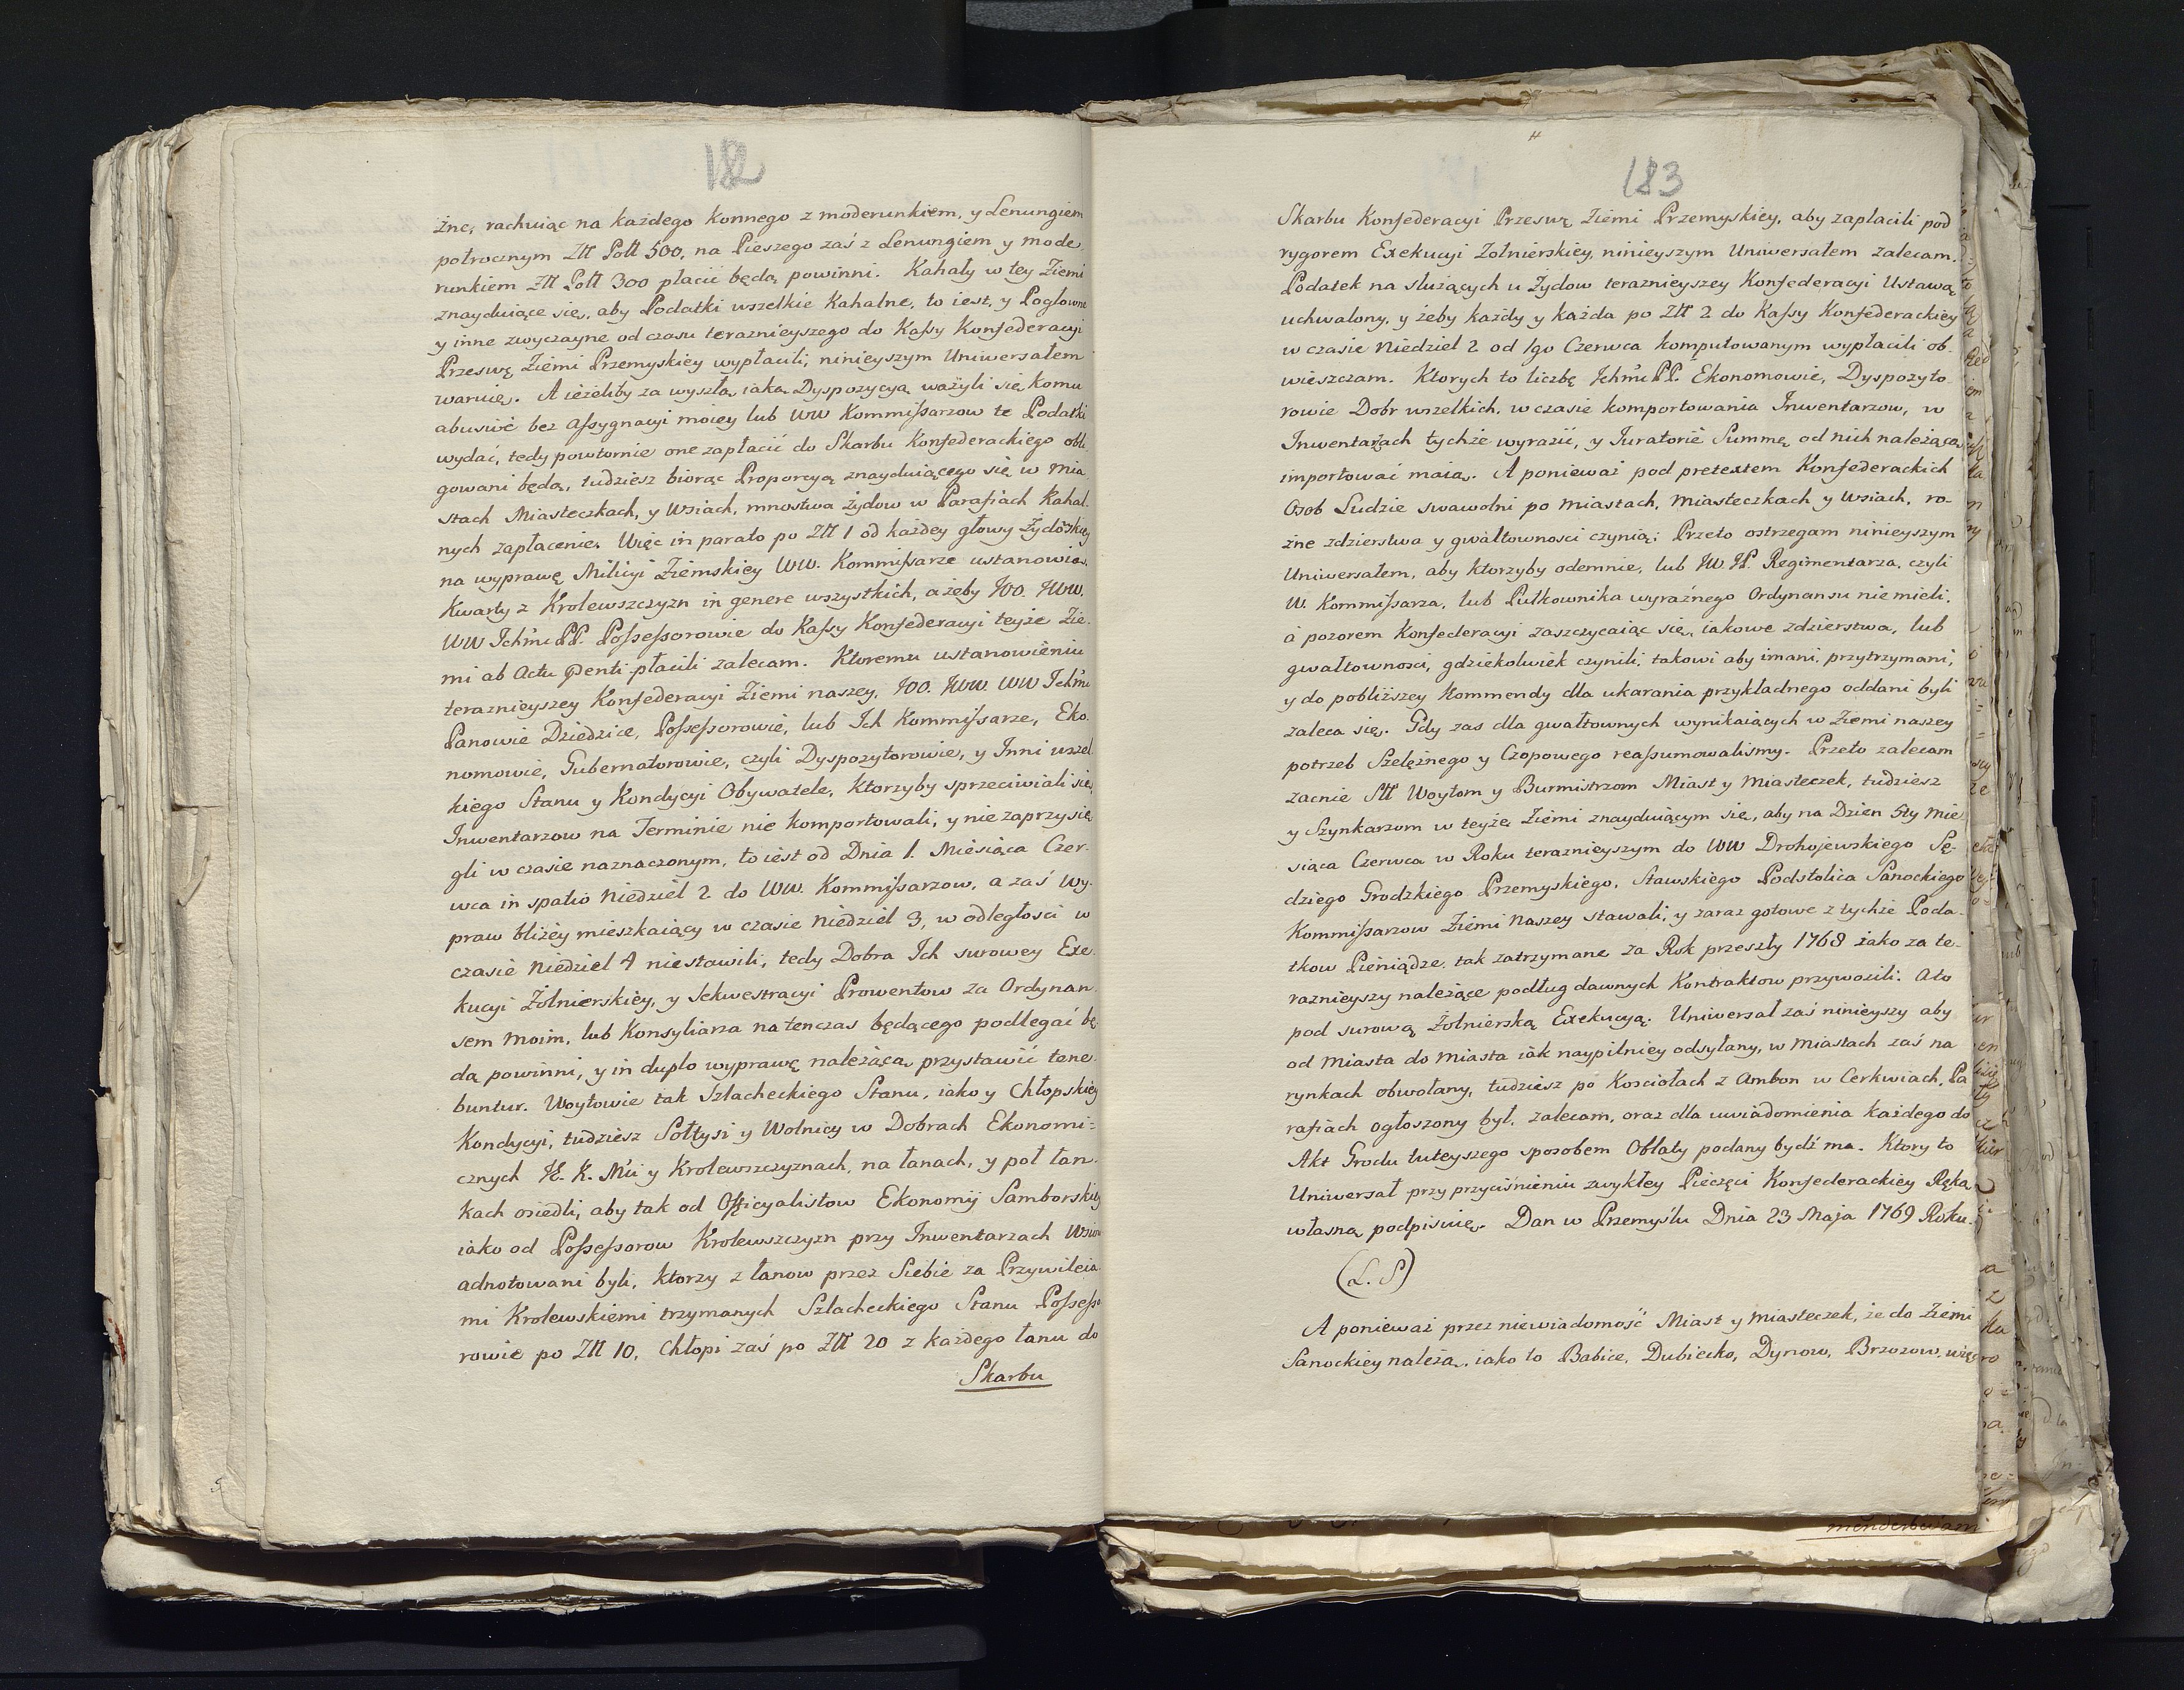 182
źne, rachuiąc na każdego konnego z moderunkiem, y Lenungiem
potrocznym Złł Poll 500, na Pieszego zaś z Lenungiem y mode
runkiem Złł Poll 300 płacić będą powinni. Kahały w tey Ziemi
znayduiące się, aby Podatki wszelkie Kahalne, to iest, y Pogłowne
y inne zwyczayne od czasu teraznieyszego do Kassy Konfederacyi
Przeswę Ziemi Przemyskiey wypłacili, ninieyszym Uniwersałem
waruię. A ieżeliby za wyszłą iaką Dyspozycyą ważyli się komu
abusivè bez Assygnacyi moiey lub WW Kommissarzow te Podatki
wydać, tedy powtornie one zapłacić do Skarbu Konfederackiego obli
gowani będą, tudziesz biorąc Proporcyą znayduiącego się w Mia
stach Miasteczkach, y Wsiach, mnostwa Żydow w Parafiach Kahal
nych zapłacenie. Więc in parato po Złł 1 od każdey głowy Żydowskiey
na wyprawę Milicyi Ziemskiey WW. Kommissarze ustanowią.
Kwarty z Krolewszczyzn in genere wszystkich, ażeby JOO. JWW.
WW Ichmć PP. Possessorowie do Kassy Konfederacyi teyże Zie-
mi ab Actu Ppenti płacili zalecam. Ktoremu ustanowieniu
teraznieyszey Konfederacyi Ziemi naszey, JOO. JWW. WW Ichmć
Panowie Dziedzice, Possessorowie, lub Ich Kommissarze, Eko-
nomowie, Gubernatorowie, czyli Dyspozytorowie, y Inni wszel
kiego Stanu y Kondycyi Obywatele, ktorzyby sprzeciwiali się,
Inwentarzow na Terminie nie komportowali, y nie zaprzysię
gli w czasie naznaczonym, to iest od Dnia 1. Miesiąca Czer-
wca in spatio Niedziel 2 do WW. Kommissarzow, a zaś Wy-
praw bliżey mieszkaiący w czasie Niedziel 3, w odległosci w
czasie Niedziel 4 nie stawili, tedy Dobra Ich surowey Exe-
kucyi Żołnierskiey, y Sekwestracyi Prowentow za Ordynan-
sem moim, lub Konsyliarza na tenczas będącego podlegać bę-
dą powinni, y in duplo wyprawę należącą przystawić tene-
buntur. Woytowie tak Szlacheckiego Stanu, iako y Chłopskiey
Kondycyi, tudziesz Sołtysi y Wolnicy w Dobrach Ekonomi=
cznych JE. K. Mći y Krolewszczyznach, na łanach, y poł łan-
kach osiedli, aby tak od Officyalistow Ekonomij Samborskiey
iako od Possessorow Krolewszczyzn przy Inwentarzach Wsiow
adnotowani byli, ktorzy z łanow przez Siebie za Przywileia-
mi Krolewskiemi trzymanych Szlacheckiego Stanu Possesso
rowie po Złł 10, Chłopi zaś po Złł 20 z każdego łanu do
Skarbu
183
Skarbu Konfederacyi Przeswę Ziemi Przemyskiey, aby zapłacili pod
rygorem Exekucyi Żołnierskiey, ninieyszym Uniwersałem zalecam.
Podatek na służących u Żydow teraznieyszey Konfederacyi Ustawą
uchwalony, y żeby każdy y każda po Złł 2 do Kassy Konfederackiey
w czasie Niedziel 2 od 1go Czerwca komputowanym wypłacili ob-
wieszczam. Ktorych to liczbę Ichmć PP. Ekonomowie, Dyspozyto-
rowie Dobr wszelkich, w czasie komportowania Inwentarzow, w
Inwentarzach tychże wyrazić, y Juratoriè Summę od nich należącą
importować maią. A ponieważ pod pretextem Konfederackich
Osob Ludzie swawolni po Miastach, Miasteczkach y Wsiach, ro-
żne zdzierstwa y gwałtownosci czynią; Przeto ostrzegam ninieyszym
Uniwersałem, aby ktorzyby odemnie, lub JW. JP. Regimentarza, czyli
W. Kommissarza, lub Pułkownika wyraźnego Ordynansu nie mieli,
à pozorem Konfederacyi zaszczycaiąc się, iakowe zdzierstwa, lub
gwałtownosci, gdziekolwiek czynili, takowi aby imani, przytrzymani,
y do pobliższey Kommendy dla ukarania przykładnego oddani byli
zaleca się. Gdy zas dla gwałtownych wynikaiących w Ziemi naszey
potrzeb Szelężnego y Czopowego reassumowalismy. Przeto zalecam
zacnie Słł Woytom y Burmistrzom Miast y Miasteczek, tudziesz
y Szynkarzom w teyże Ziemi znayduiącym się, aby na Dzien 5ty Mie
siąca Czerwca w Roku teraznieyszym do WW Drohojewskiego Sę-
dziego Grodzkiego Przemyskiego, Stawskiego Podstolica Sanockiego
Kommissarzow Ziemi Naszey stawali, y zaraz gotowe z tychże Poda-
tkow Pieniądze, tak zatrzymane za Rok przeszły 1768 iako za te-
raznieyszy należące podług dawnych Kontraktow przywozili. A to
pod surową Żołnierską Exekucyą. Uniwersał zaś ninieyszy aby
od Miasta do Miasta iak naypilniey odsyłany, w Miastach zaś na
rynkach obwołany, tudziesz po Kosciołach z Ambon w Cerkwiach, Pa
rafiach ogłoszony był, zalecam, oraz dla uwiadomienia każdego do
Akt Grodu tuteyszego sposobem Oblaty podany bydź ma. Ktory to
Uniwersał przy przyciśnieniu zwykłey Pieczęci Konfederackiey Ręką
własną podpisuię. Dan w Przemyślu Dnia 23 Maja 1769 Roku.
(L. S)
A ponieważ przez niewiadomość Miast y Miasteczek, że do Ziemi
Sanockiey należą, iako to Babice, Dubiecko, Dynow, Brzozow, więc